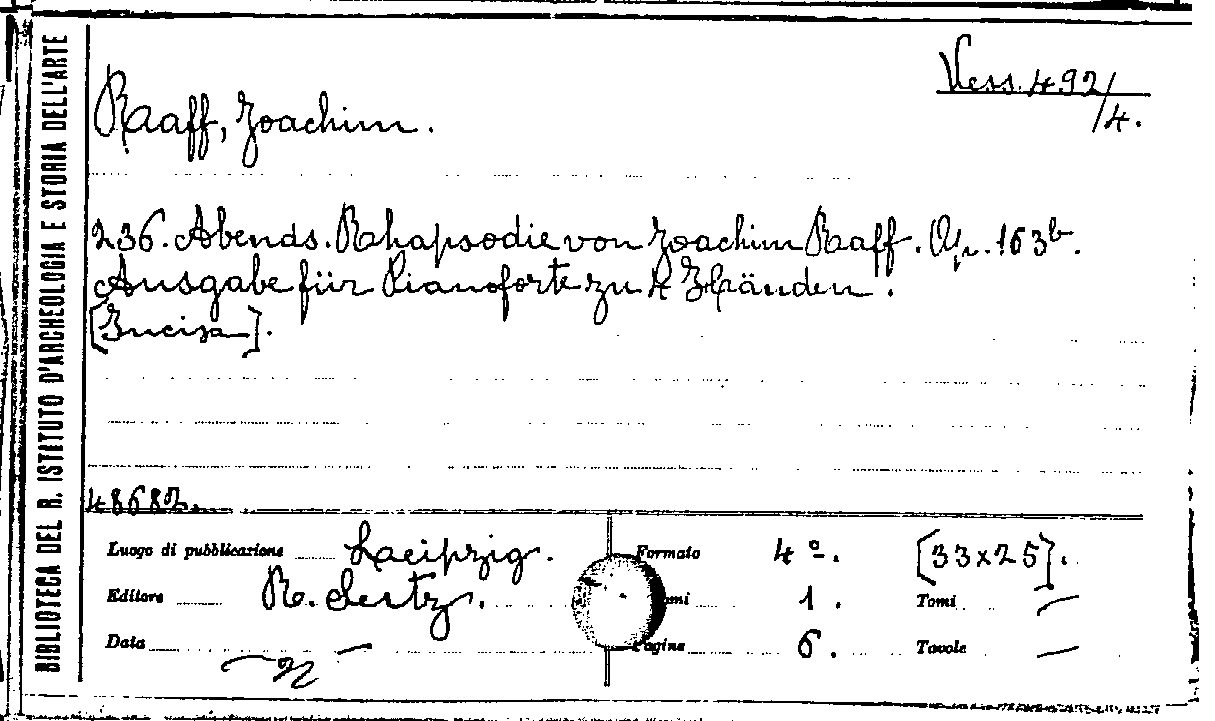 BIBLIOTECA DEL R. ISTITUTO D'ARCHEOLOGIA E STORIA DELL'ARTE
Vess. 492/4.
Raaff, Joachim.
236. Abends. Rhapsodie von Joachim Raaff. Op. 163b.
Ausgabe für Pianoforte zu 4 Händen.
[Incisa].
48682.
Luogo di pubblicazione Laeipzig. Formato 4º. [33x25].
Editore R. Seitz. omi 1. Tomi —
Data — Pagine 6. Tavole —